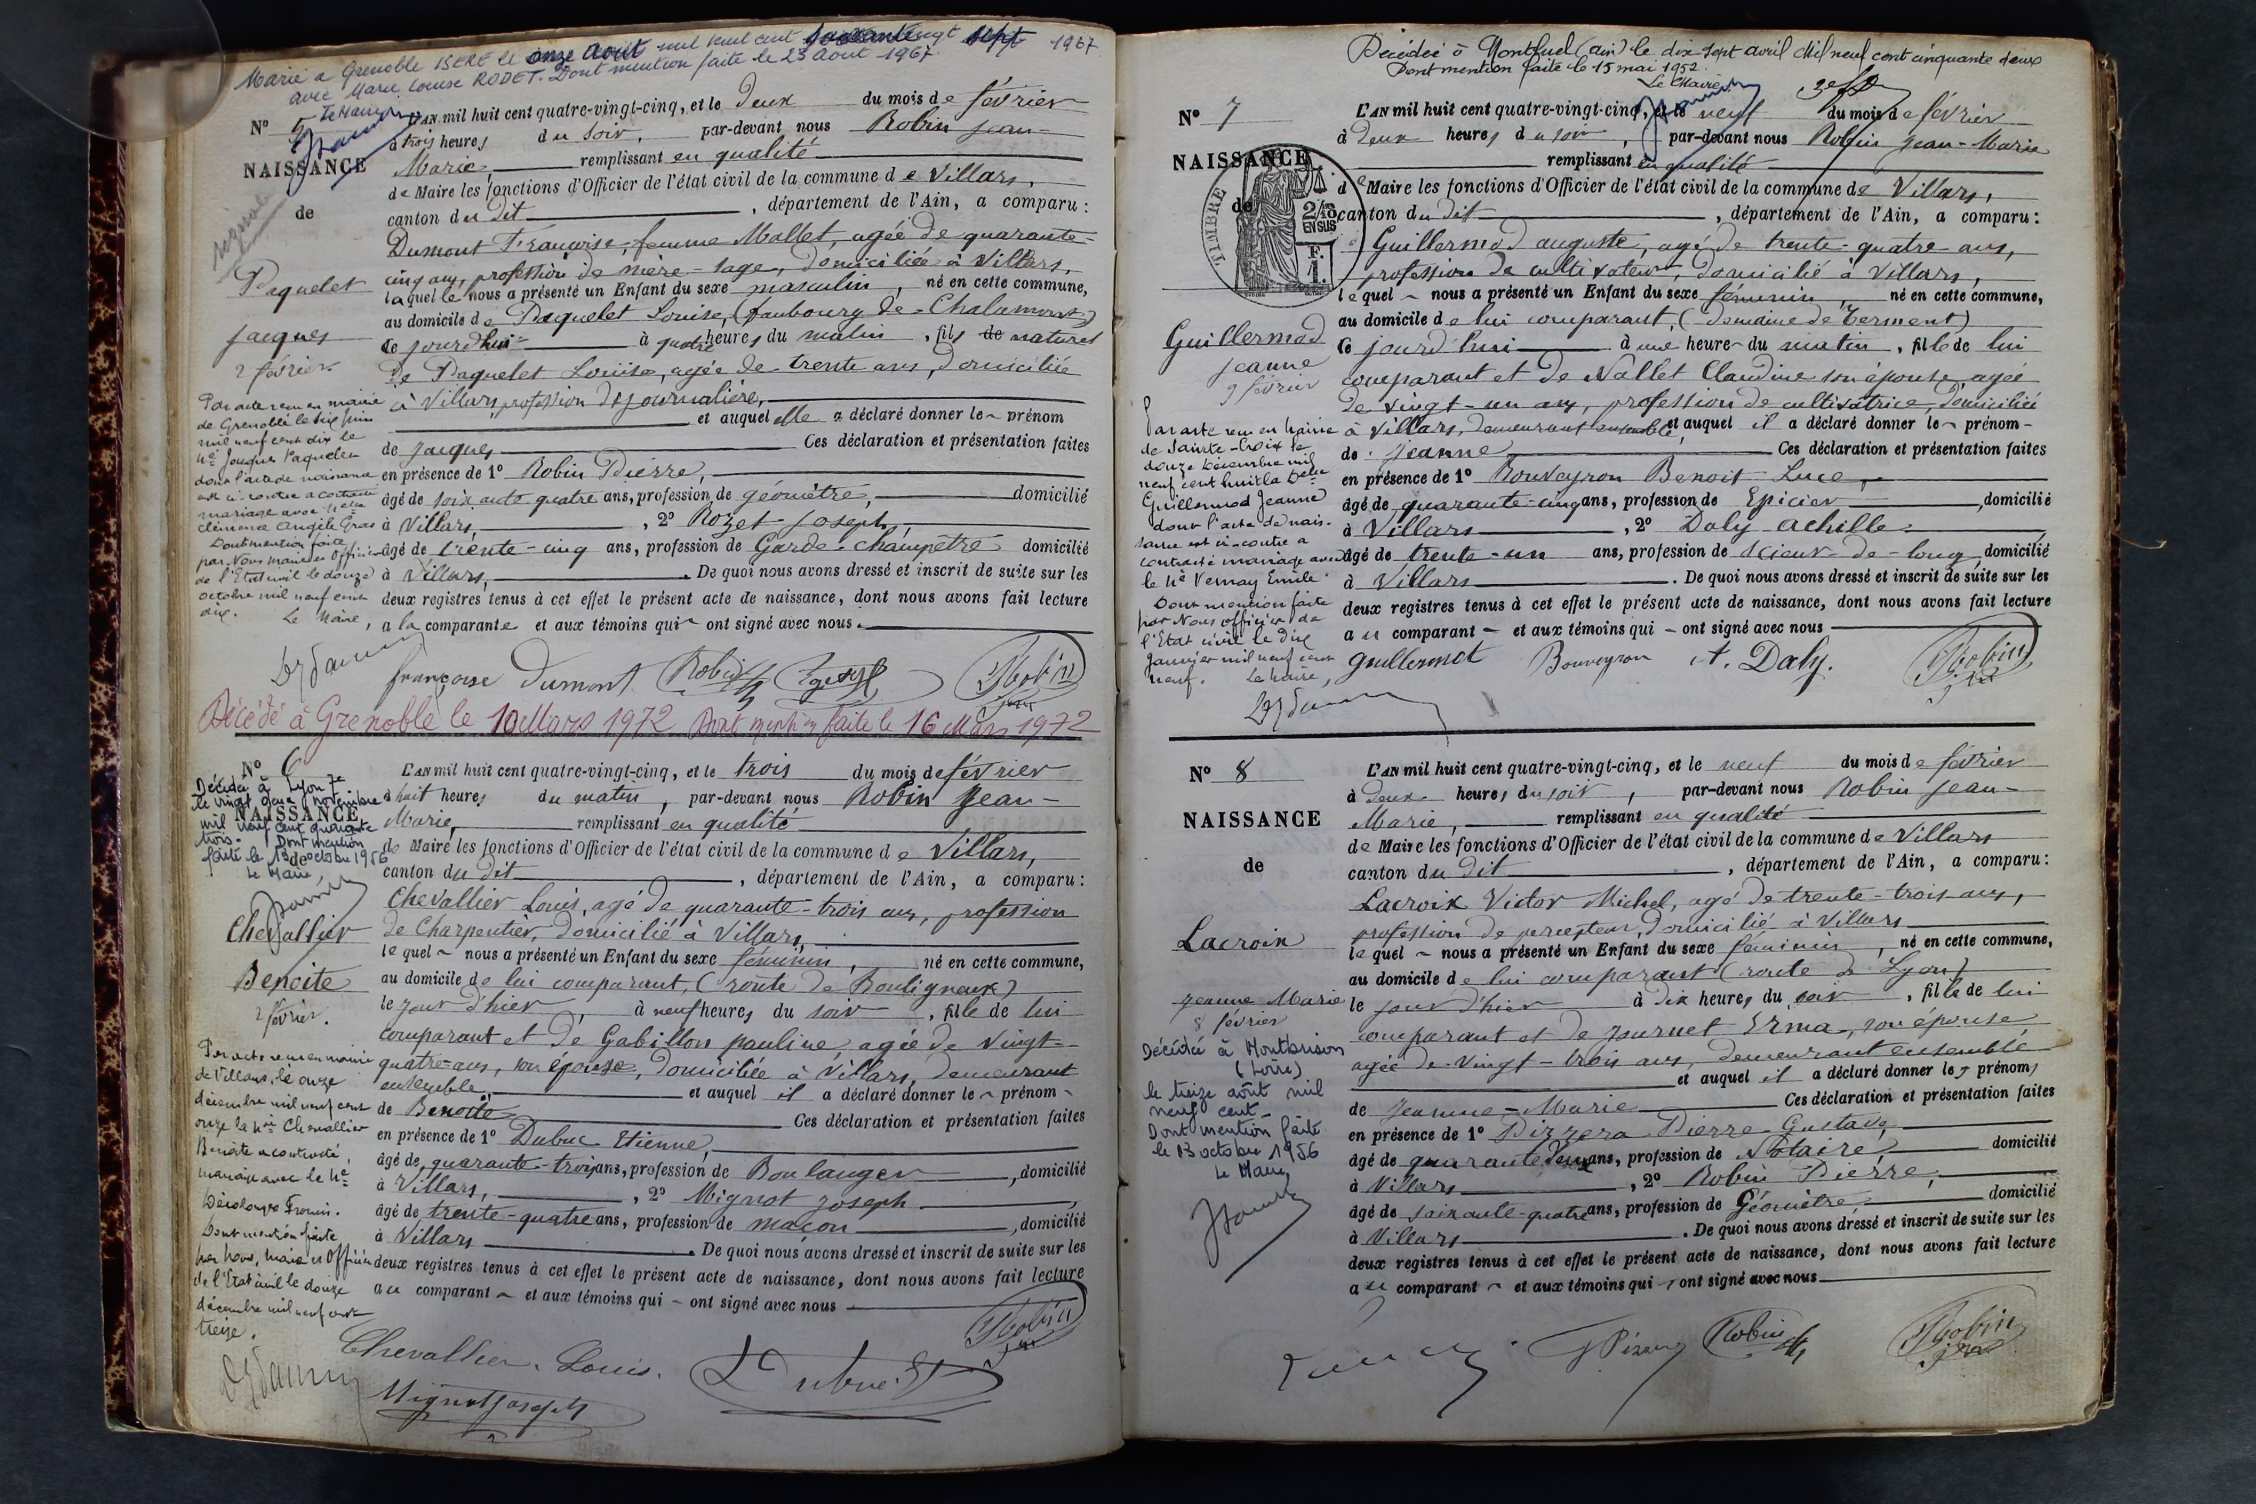 Marié a Grenoble ISERE le onze Aout mil neuf cent vingt sept 1967
avec Marie Louise RODET. Dont mention faite le 23 aout 1967
Le Maire
N° 5
NAISSANCE
de
Paquelet
Jacques
2 février
Par acte reçu en mairie
de Grenoble le six juin
mil neuf cent dix le
né Jacques Paquelet
dont l'acte de naissance
est ci-contre a contracté
mariage avec Melle
Clémence Angèle Gras
Dont mention faite
par Nous maire Officier
de l'Etat civil le douze
octobre mil neuf cent
dix.
Le Maire,
L'AN mil huit cent quatre-vingt-cinq, et le deux du mois de février
à trois heures du soir, par-devant nous Robin Jean-
Marie, remplissant en qualité
de Maire les fonctions d'Officier de l'état civil de la commune de Villars,
canton du dit, département de l'Ain, a comparu :
Dumont Françoise, femme Mallet, agée de quarante-
cinq ans, profession de mère-sage, domiciliée à Villars,
laquelle nous a présenté un Enfant du sexe masculin, né en cette commune,
au domicile de Paquelet Louise, (faubourg de Chalamont)
ce jourd'hui à quatre heures du matin, fils de naturel
de Paquelet Louise, agée de trente ans, domiciliée
à Villars, profession de journalière,
et auquel elle a déclaré donner le prénom
de Jacques Ces déclaration et présentation faites
en présence de 1° Robin Pierre,
âgé de soixante quatre ans, profession de géomètre, domicilié
à Villars, 2° Rozet Joseph,
âgé de trente-cinq ans, profession de Garde-champêtre domicilié
à Villars, De quoi nous avons dressé et inscrit de suite sur les
deux registres tenus à cet effet le présent acte de naissance, dont nous avons fait lecture
a la comparante et aux témoins qui ont signé avec nous.
françoise Dumont Robin Robin
Décédé à Grenoble le 10 Mars 1972 Dont mention faite le 16 Mars 1972
N° 6
NAISSANCE
de
Décédée à Lyon 7e
le vingt deux novembre
mil neuf cent quarante
trois. Dont mention
faite le 13 octobre 1956
Le Maire,
Chevallier
Benoite
2 février.
Par acte reçu en mairie
de Villars, le onze
décembre mil neuf cent
onze la née Chevallier
Benoite a contracté,
mariage avec le né
Dont mention faite
par Nous, maire et Officier
de l'Etat civil le douze
décembre mil neuf cent
treize.
L'AN mil huit cent quatre-vingt-cinq, et le trois du mois de février
à huit heures du matin, par-devant nous Robin Jean-
Marie, remplissant en qualité
de Maire les fonctions d'Officier de l'état civil de la commune de Villars,
canton du dit, département de l'Ain, a comparu :
Chevallier Louis, agé de quarante-trois ans, profession
de Charpentier, domicilié à Villars,
lequel nous a présenté un Enfant du sexe féminin, né en cette commune,
au domicile de lui comparant, (route de Bouligneux)
le jour d'hier, à neuf heures du soir, fille de lui
comparant et de Gabillon pauline, agée de vingt-
quatre-ans, son épouse, domiciliée à Villars, demeurant
ensemble, et auquel il a déclaré donner le prénom
de Benoite Ces déclaration et présentation faites
en présence de 1° Dubuc Etienne,
âgé de quarante-trois ans, profession de Boulanger, domicilié
à Villars, 2° Mignot Joseph
âgé de trente-quatre ans, profession de maçon, domicilié
à Villars. De quoi nous avons dressé et inscrit de suite sur les
deux registres tenus à cet effet le présent acte de naissance, dont nous avons fait lecture
au comparant et aux témoins qui ont signé avec nous
Robin
Chevallier Louis. Dubuc Et
Mignot Joseph
Décédée à Montluel (ain) le dix sept avril Mil neuf cent cinquante deux
Dont mention faite le 15 mai 1952.
Le Maire
N° 7
NAISSANCE
de
TIMBRE
2/10
EN SUS
F.
1.
Guillermod
Jeanne
9 février
Par acte reçu en mairie
de Sainte-Croix le
douze Décembre mil
neuf cent huit la Delle
Guillermod Jeanne
dont l'acte de nais-
sance est ci-contre a
contracté mariage avec
le né Vernay Emile
Dont mention faite
par Nous officier de
l'Etat civil le dix
Janvier mil neuf cent
neuf. Le Maire,
L'AN mil huit cent quatre-vingt-cinq, et le neuf du mois de février
à deux heures du soir, par-devant nous Robin Jean-Marie
remplissant en qualité
de Maire les fonctions d'Officier de l'état civil de la commune de Villars,
canton du dit, département de l'Ain, a comparu :
Guillermod auguste, agé de trente-quatre ans,
profession de cultivateur, domicilié à Villars,
lequel nous a présenté un Enfant du sexe féminin, né en cette commune,
au domicile de lui comparant, (domaine de Terment)
Ce jourd'hui à une heure du matin, fille de lui
comparant et de Nallet Claudine son épouse, agée
de vingt-un ans, profession de cultivatrice, domiciliée
à Villars, demeurant ensemble, et auquel il a déclaré donner le prénom
de Jeanne Ces déclaration et présentation faites
en présence de 1° Bouveyron Benoit Luce,
âgé de quarante-cinq ans, profession de Epicier, domicilié
à Villars, 2° Daly Achille
âgé de trente-un ans, profession de scieur-de-long, domicilié
à Villars. De quoi nous avons dressé et inscrit de suite sur les
deux registres tenus à cet effet le présent acte de naissance, dont nous avons fait lecture
au comparant et aux témoins qui ont signé avec nous
Guillermet Bouveyron A. Daly. Robin
N° 8
NAISSANCE
de
Lacroix
Jeanne Marie
8 février
Décédée à Montbrison
(Loire)
le treize août mil
neuf cent
Dont mention faite
le 13 octobre 1956
Le Maire
L'AN mil huit cent quatre-vingt-cinq, et le neuf du mois de février
à deux heures du soir, par-devant nous Robin Jean-
Marie, remplissant en qualité
de Maire les fonctions d'Officier de l'état civil de la commune de Villars
canton du dit, département de l'Ain, a comparu :
Lacroix Victor Michel, agé de trente-trois ans,
profession de percepteur, domicilié à Villars
lequel nous a présenté un Enfant du sexe féminin, né en cette commune,
au domicile de lui comparant (route de Lyon)
le jour d'hier à dix heures du soir, fille de lui
comparant et de Journet Erma, son épouse
agée de vingt-trois ans, demeurant ensemble
et auquel il a déclaré donner les prénoms
de Jeanne-Marie Ces déclaration et présentation faites
en présence de 1° Pizzera Pierre Gustave,
âgé de quarante deux ans, profession de Notaire, domicilié
à Villars, 2° Robin Pierre,
âgé de soixante-quatre ans, profession de Géomètre domicilié
à Villars. De quoi nous avons dressé et inscrit de suite sur les
deux registres tenus à cet effet le présent acte de naissance, dont nous avons fait lecture
au comparant et aux témoins qui ont signé avec nous
Robin Robin